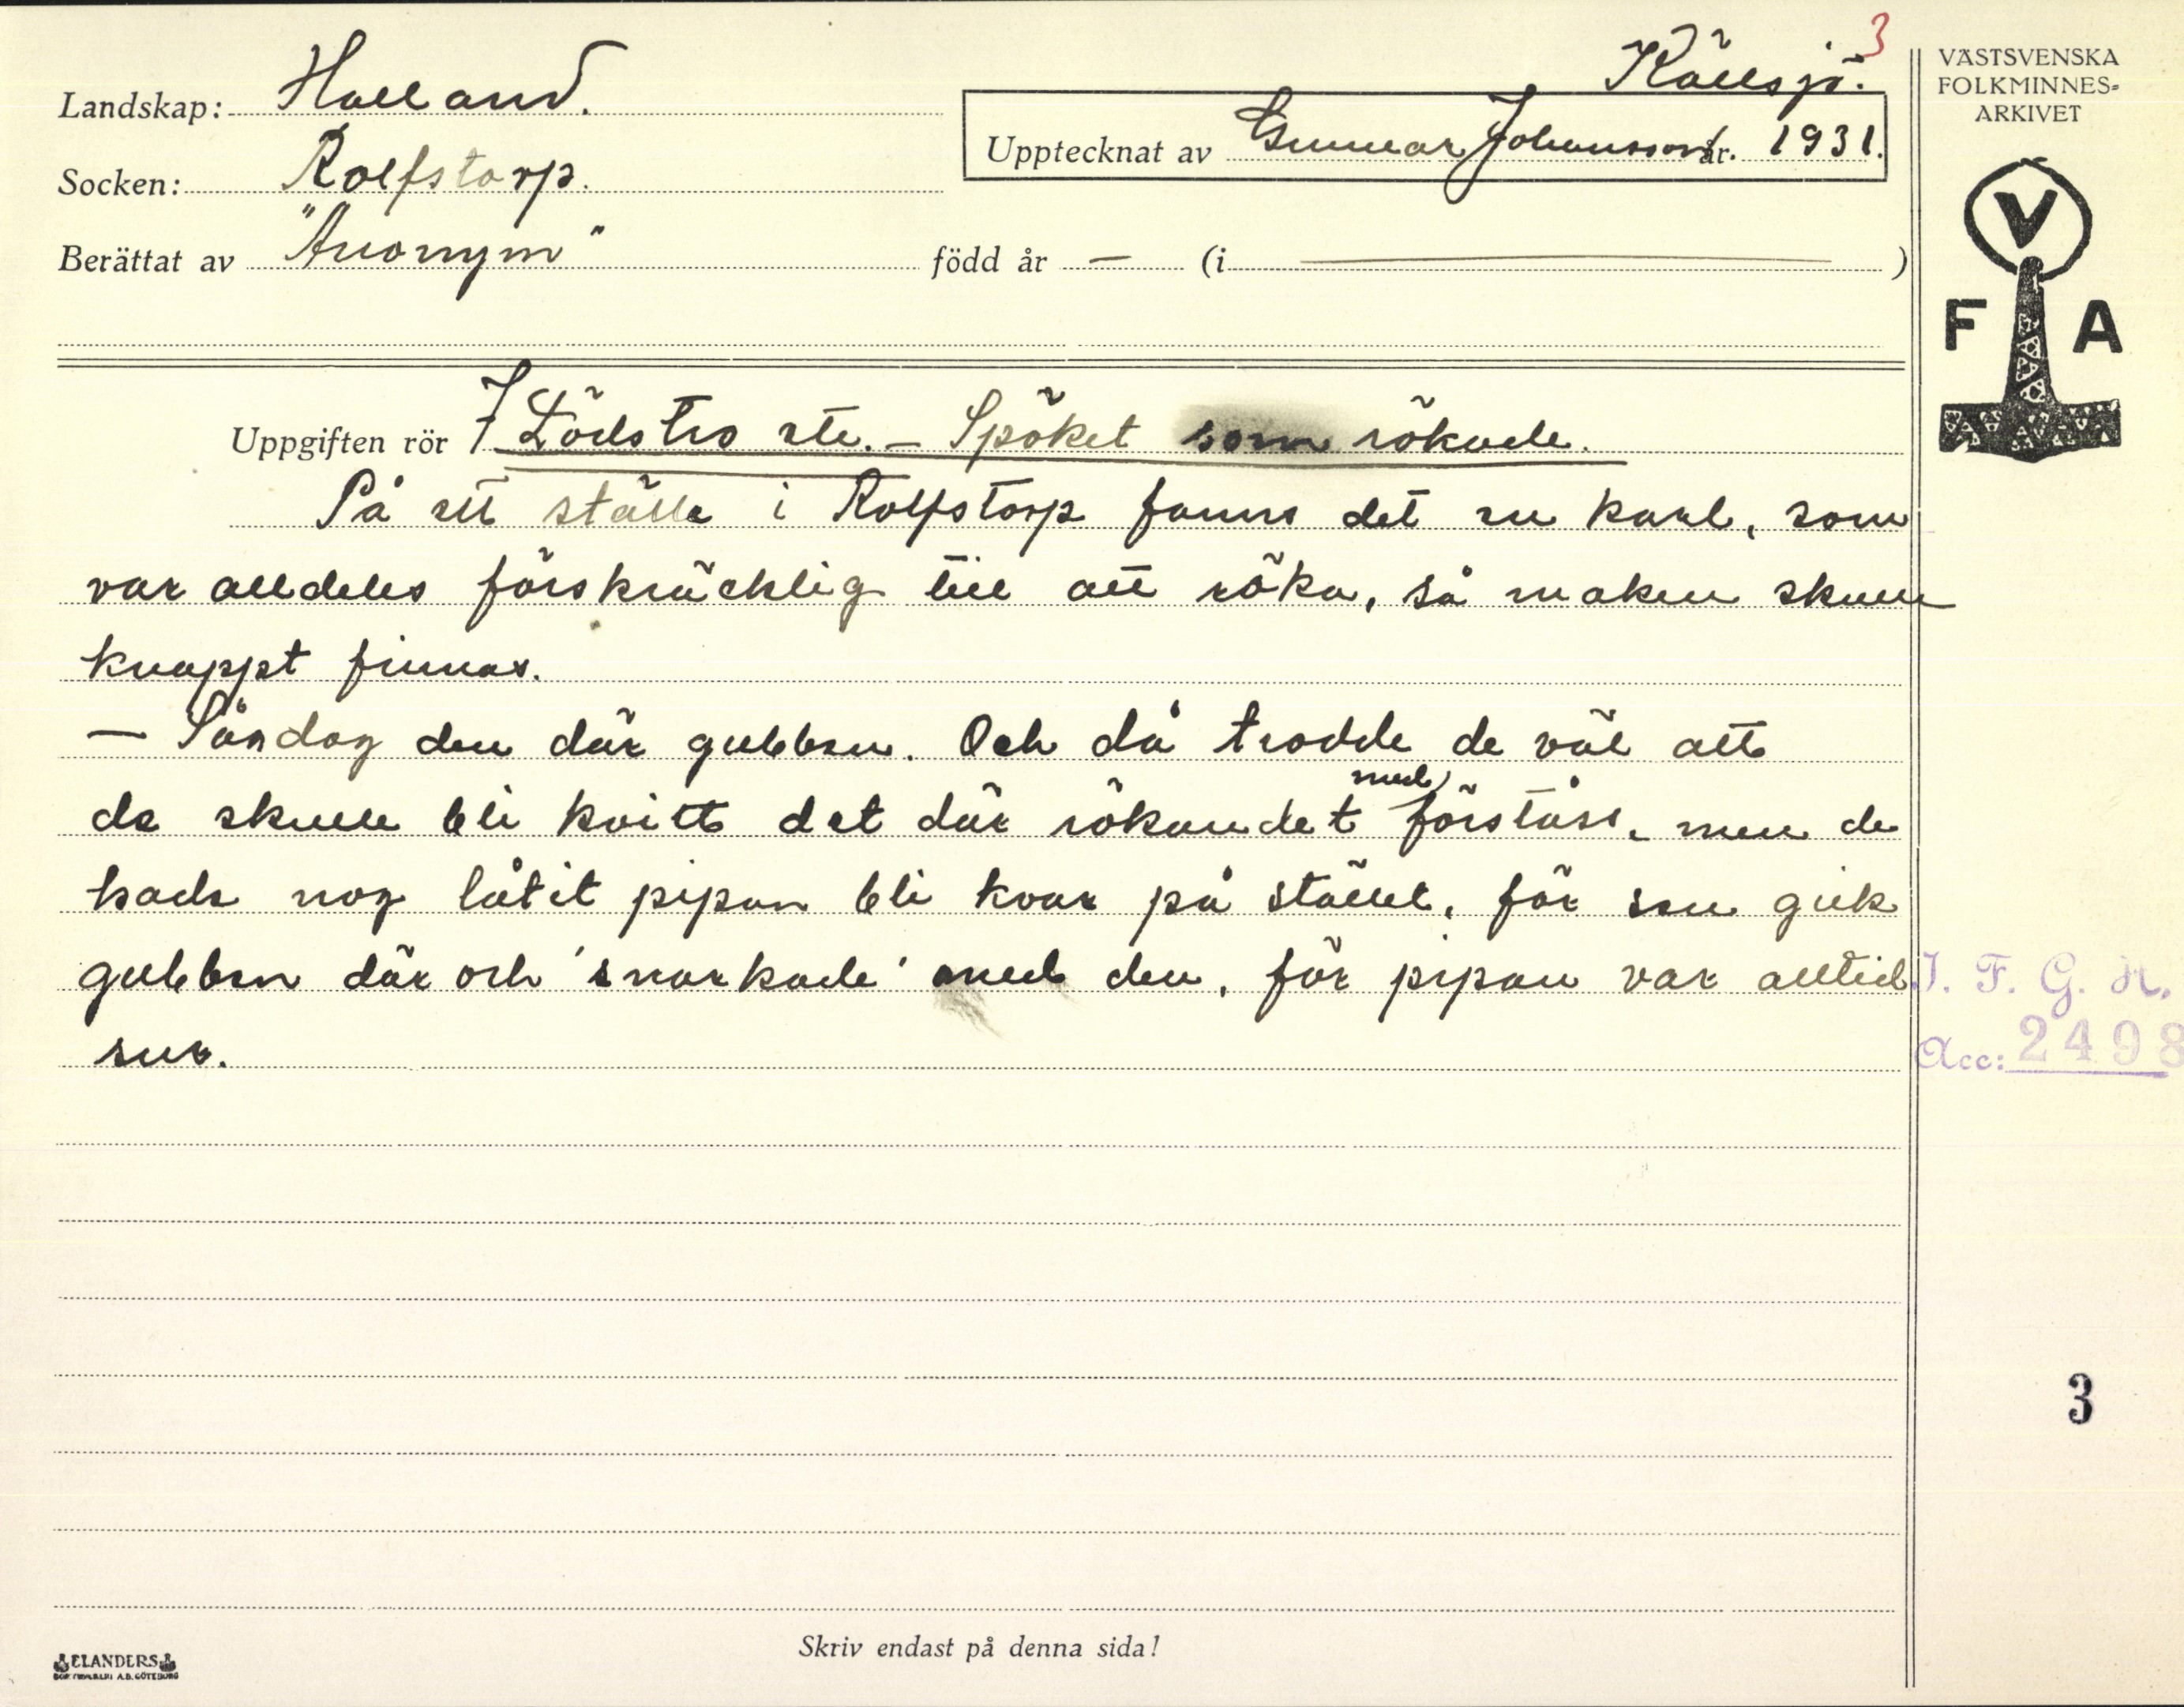 3
Källsjö.
Landskap: Halland.
Upptecknat av Gunnar Johansson år. 1931.
Socken: Rolfstorp.
Berättat av "Anonym" född år – (i )
VÄSTSVENSKA
FOLKMINNES=
ARKIVET
V
F A
Uppgiften rör Dödstro etc. – Spöket som rökade.
På ett ställe i Rolfstorp fanns det en karl, som
var alldeles förskräcklig till att röka, så maken skulle
knappt finnas.
– Så dog den där gubben. Och då trodde de väl att
de skulle bli kvitt det där rökandet med förståss, men de
hade nog låtit pipan bli kvar på stället, för sen gick
gubben där och 'snarkade' med den, för pipan var alltid
sur.
I. F. G. H.
Acc: 2498
3
Skriv endast på denna sida!
ELANDERS
BOKTRYCKERI A.B. GÖTEBORG